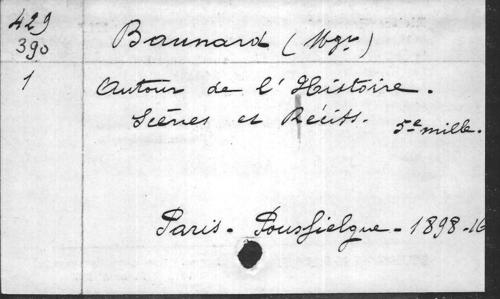 429
390
1
Baunard (Mgr)
Autour de l'Histoire.
Scènes et Récits.
5e mille.
Paris - Poussielgue - 1898 - 16